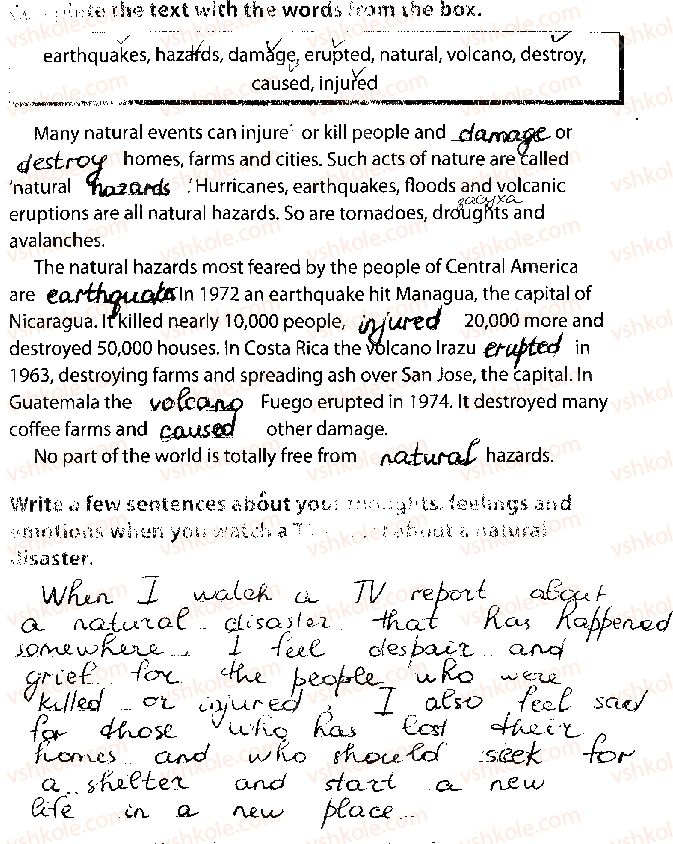 the text with the words from the box.
earthquakes, hazards, damage, erupted, natural, volcano, destroy,
caused, injured
Many natural events can injure or kill people and damage or
destroy homes, farms and cities. Such acts of nature are called
'natural hazards'. Hurricanes, earthquakes, floods and volcanic
засуха
eruptions are all natural hazards. So are tornadoes, droughts and
avalanches.
The natural hazards most feared by the people of Central America
are earthquakes. In 1972 an earthquake hit Managua, the capital of
Nicaragua. It killed nearly 10,000 people, injured 20,000 more and
destroyed 50,000 houses. In Costa Rica the volcano Irazu erupted in
1963, destroying farms and spreading ash over San Jose, the capital. In
Guatemala the volcano Fuego erupted in 1974. It destroyed many
coffee farms and caused other damage.
No part of the world is totally free from natural hazards.
Write a few sentences about your thoughts, feelings and
emotions when you watch a about a natural
disaster.
When I watch a TV report about
a natural disaster that has happened
somewhere. I feel despair and
grief for the people who were
killed or injured, I also feel sad
for those who has lost their
homes and who should seek for
a shelter and start a new
life in a new place...